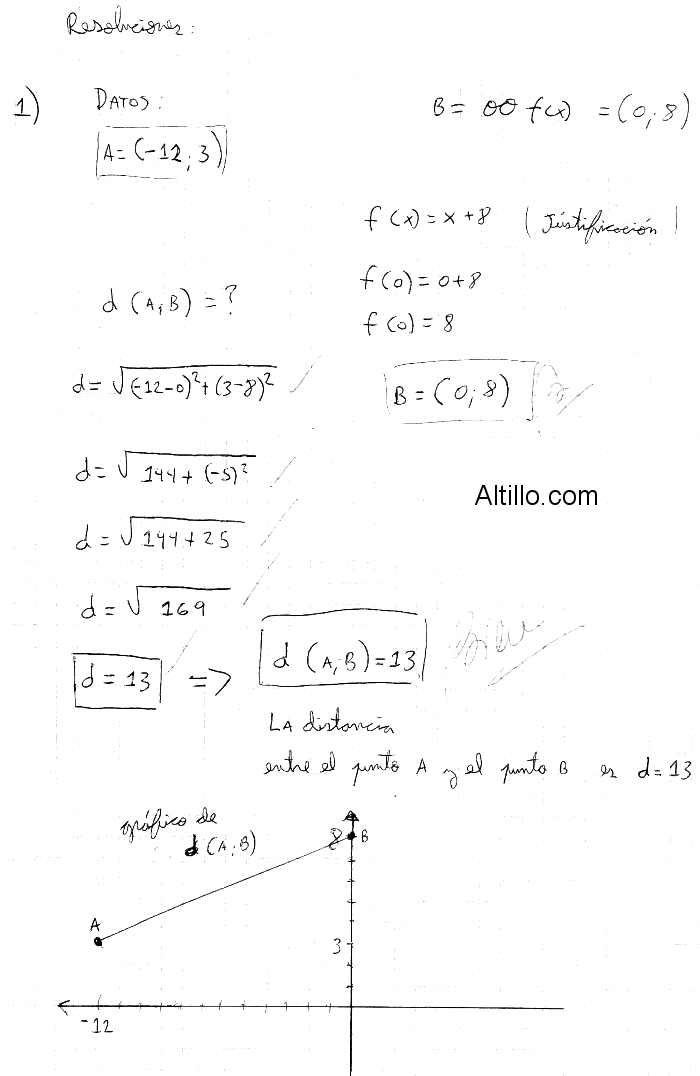 Resoluciones:
1) DATOS:
A = (-12; 3)
B = OO f(x) = (0; 8)
f(x) = x + 8 (Justificación)
f(0) = 0+8
f(0) = 8
B = (0; 8)
d (A; B) = ?
d = √(-12-0)² + (3-8)²
d = √144 + (-5)²
d = √144 + 25
d = √169
d = 13 => d (A; B) = 13
Bien
LA distancia
entre el punto A y el punto B es d = 13
Altillo.com
gráfico de
d (A; B)
8 B
A
3
-12